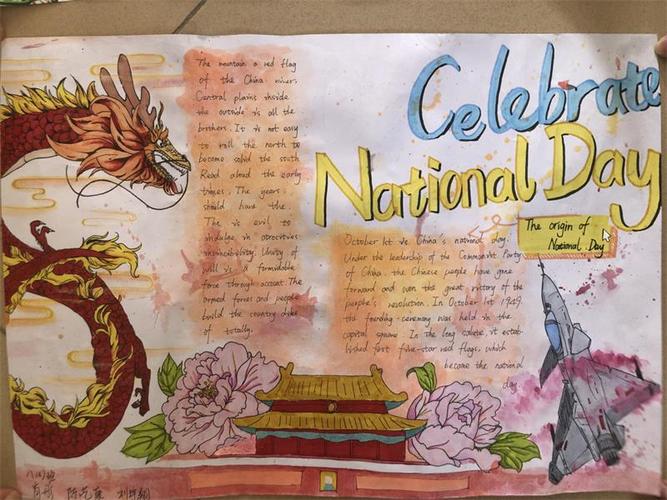 Celebrate
National Day
The mountain a red flag
of the China river,
Central plains inside
the outside is all the
brothers. It is not easy
to roll the north to
become solid the south
Read aloud the early
times. The years
should have the.
The is evil to
indulge in atrocities
invincibility. Unity of
will is a formidable
force through account. The
armed forces and people
build the country dike
of totally.
The origin of
National Day
October 1st is China's national day.
Under the leadership of the Communist Party
of China, the Chinese people have gone
forward and won the great victory of the
people's revolution. In October 1st 1949,
the founding ceremony was held in the
capital square. In the long salute, it estab-
lished first five-star red flags, which
become the national
day